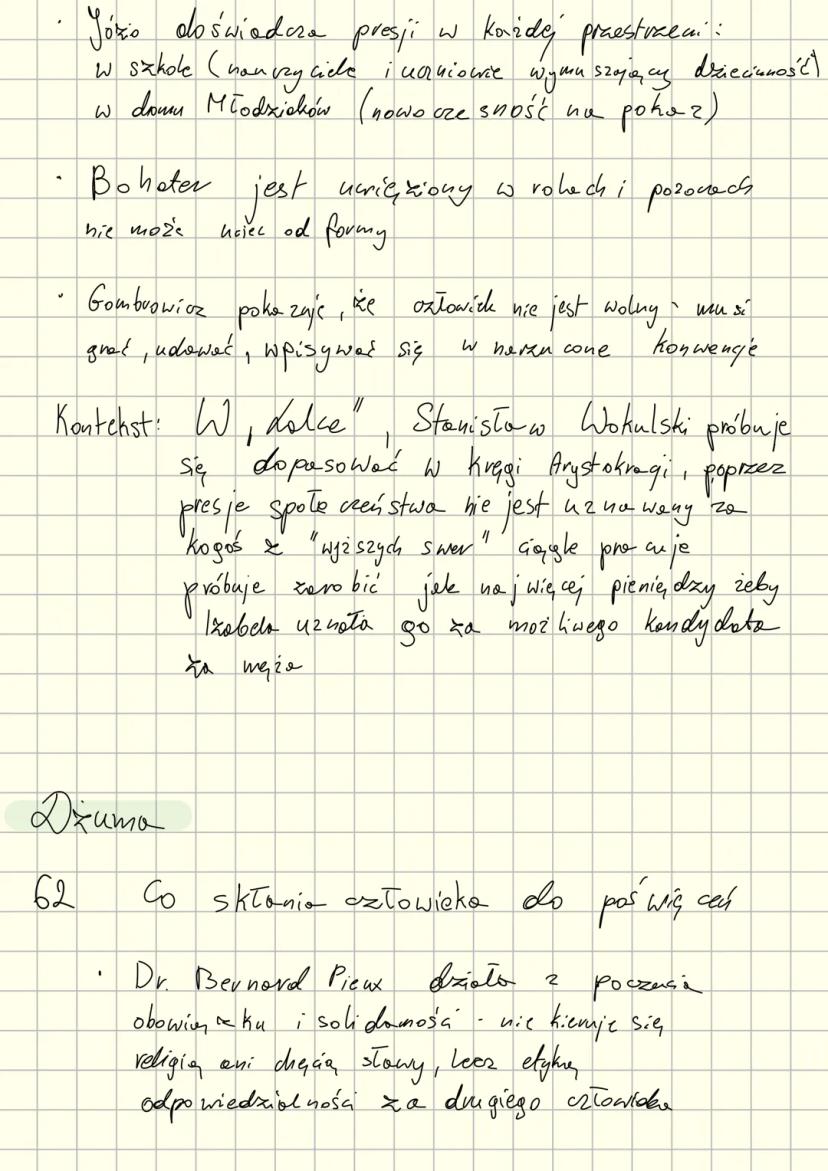 · Józio doświadcza presji w każdej przestrzeni:
w szkole (nauczyciele i uczniowie wymuszający dziecinność)
w domu Młodziaków (nowoczesność na pokaz)
· Bohater jest uwięziony w rolach i pozorach
nie może uciec od formy
· Gombrowicz pokazuje, że człowiek nie jest wolny - musi
grać, udawać, wpisywać się w narzucone konwencje
Kontekst: W „Lalce", Stanisław Wokulski próbuje
się dopasować w kręgi Arystokragi, poprzez
presje społeczeństwa nie jest uznawany za
kogoś z "wyższych swer" ciągle pracuje
próbuje zarobić jak najwięcej pieniędzy żeby
Izabela uznała go za możliwego kandydata
za męża
Dżuma
62 Co skłania człowieka do poświęceń
· Dr. Bernard Rieux działa z poczucia
obowiązku i solidarności - nie kieruje się
religią ani chęcią sławy, lecz etyką
odpowiedzialności za drugiego człowieka